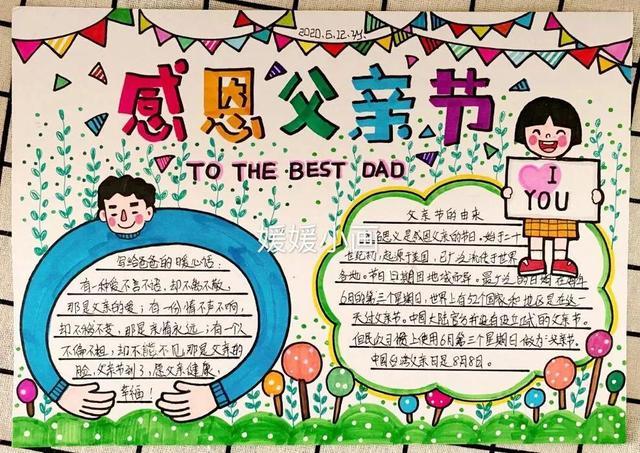 2020.5.12.
感恩父亲节
TO THE BEST DAD
I
YOU
媛媛小画
写给爸爸的暖心话:
有一种爱不言不语,却不离不散,
那是父亲的爱;有一份情不声不响,
却不移不变,那是亲情永远;有一个人
不偏不袒,却不能不见,那是父亲的
脸,父亲节到了,愿父亲健康,
幸福!
父亲节的由来
思义是感恩父亲的节日。始于二十
世纪初,起源于美国,已广泛流传于世界
各地。节日日期因地域而异。最广泛的日期在每年
6月的第三个星期日,世界上有52个国家和地区是在这一
天过父亲节。中国大陆官方并没有设立正式的父亲节。
但民众习惯上使用6月第三个星期日做为父亲节。
中国台湾父亲日是8月8日。